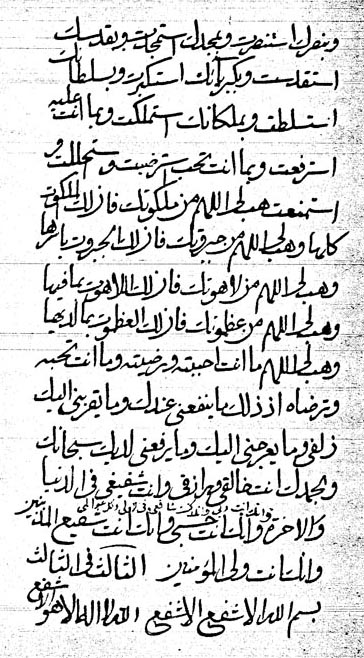 وبنصرك استنصرت وبمجدك استمجدت وبقدسك
استقدست وبكبريائك استكبرت وبسلطانك
استسلطت وبملكانك استملكت وبما انت عليه
استرفعت وبما انت تحب استرضيت واستجللت و
استمنعت هب لي اللهم من ملكوتك فان لك الملكوت
كلها وهب لي اللهم من جبروتك فان لك الجبروت باسرها
وهب لي اللهم من لاهوتك فان لك اللاهوت بما فيها
وهب لي اللهم من عظموتك فان لك العظموت بما لديها
وهب لي اللهم ما انت احببته ورضيته وما انت تحبه
وترضاه اذ ذلك ما ينفعني عندك وما يقربني اليك
زلفى وما يعرجني اليك وما يرفعني لديك سبحانك
وبحمدك انت خالقي ورازقي وانت شفيعي في الدنيا
والاخرة وانك انت حسبي وانك انت شفيع المذنبين
وانك انت ولي المؤمنين الثالث في الثالث
بسم الله الاشفع الاشفع الله لا اله الا هو الاشفع